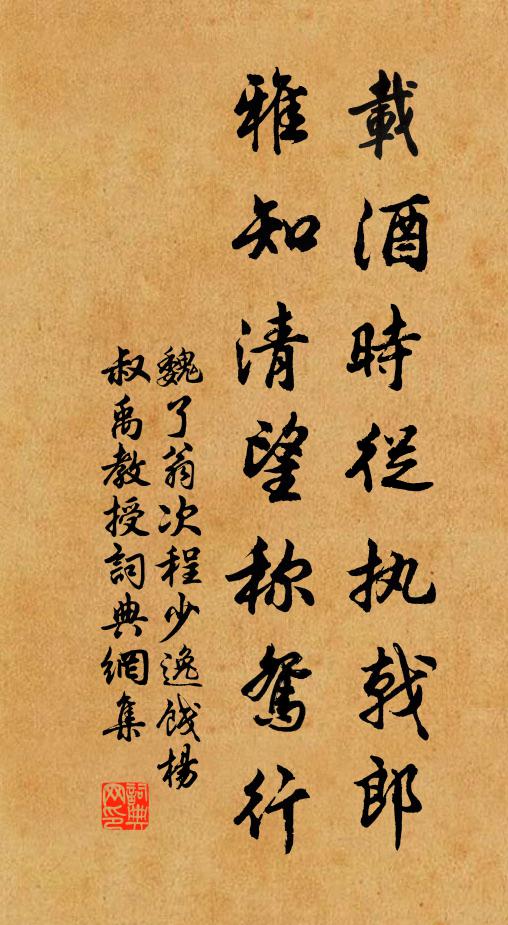 載酒時從执戟郎
雅知清望称鴛行
魏了翁次程少逸餞楊
叔禹教授詞典網集
詞典
网印